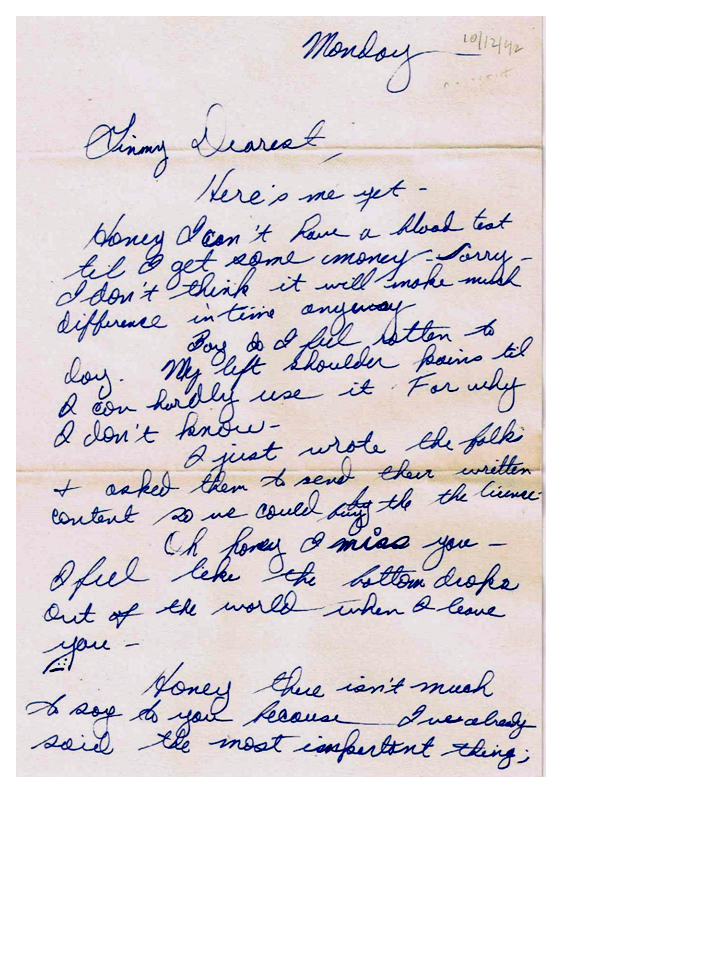 Monday
10/12/42
Jimmy Dearest,
Here's me yet -
Honey I can't have a blood test
til I get some money - Sorry -
I don't think it will make much
difference in time anyway
Boy do I feel rotten to
day. My left shoulder pains til
I can hardly use it. For why
I don't know -
I just wrote the folks
+ asked them to send their written
content so we could buy the the license
Oh honey I miss you -
I feel like the bottom drops
out of the world when I leave
you -
Honey there isn't much
to say to you because I've already
said the most important thing;